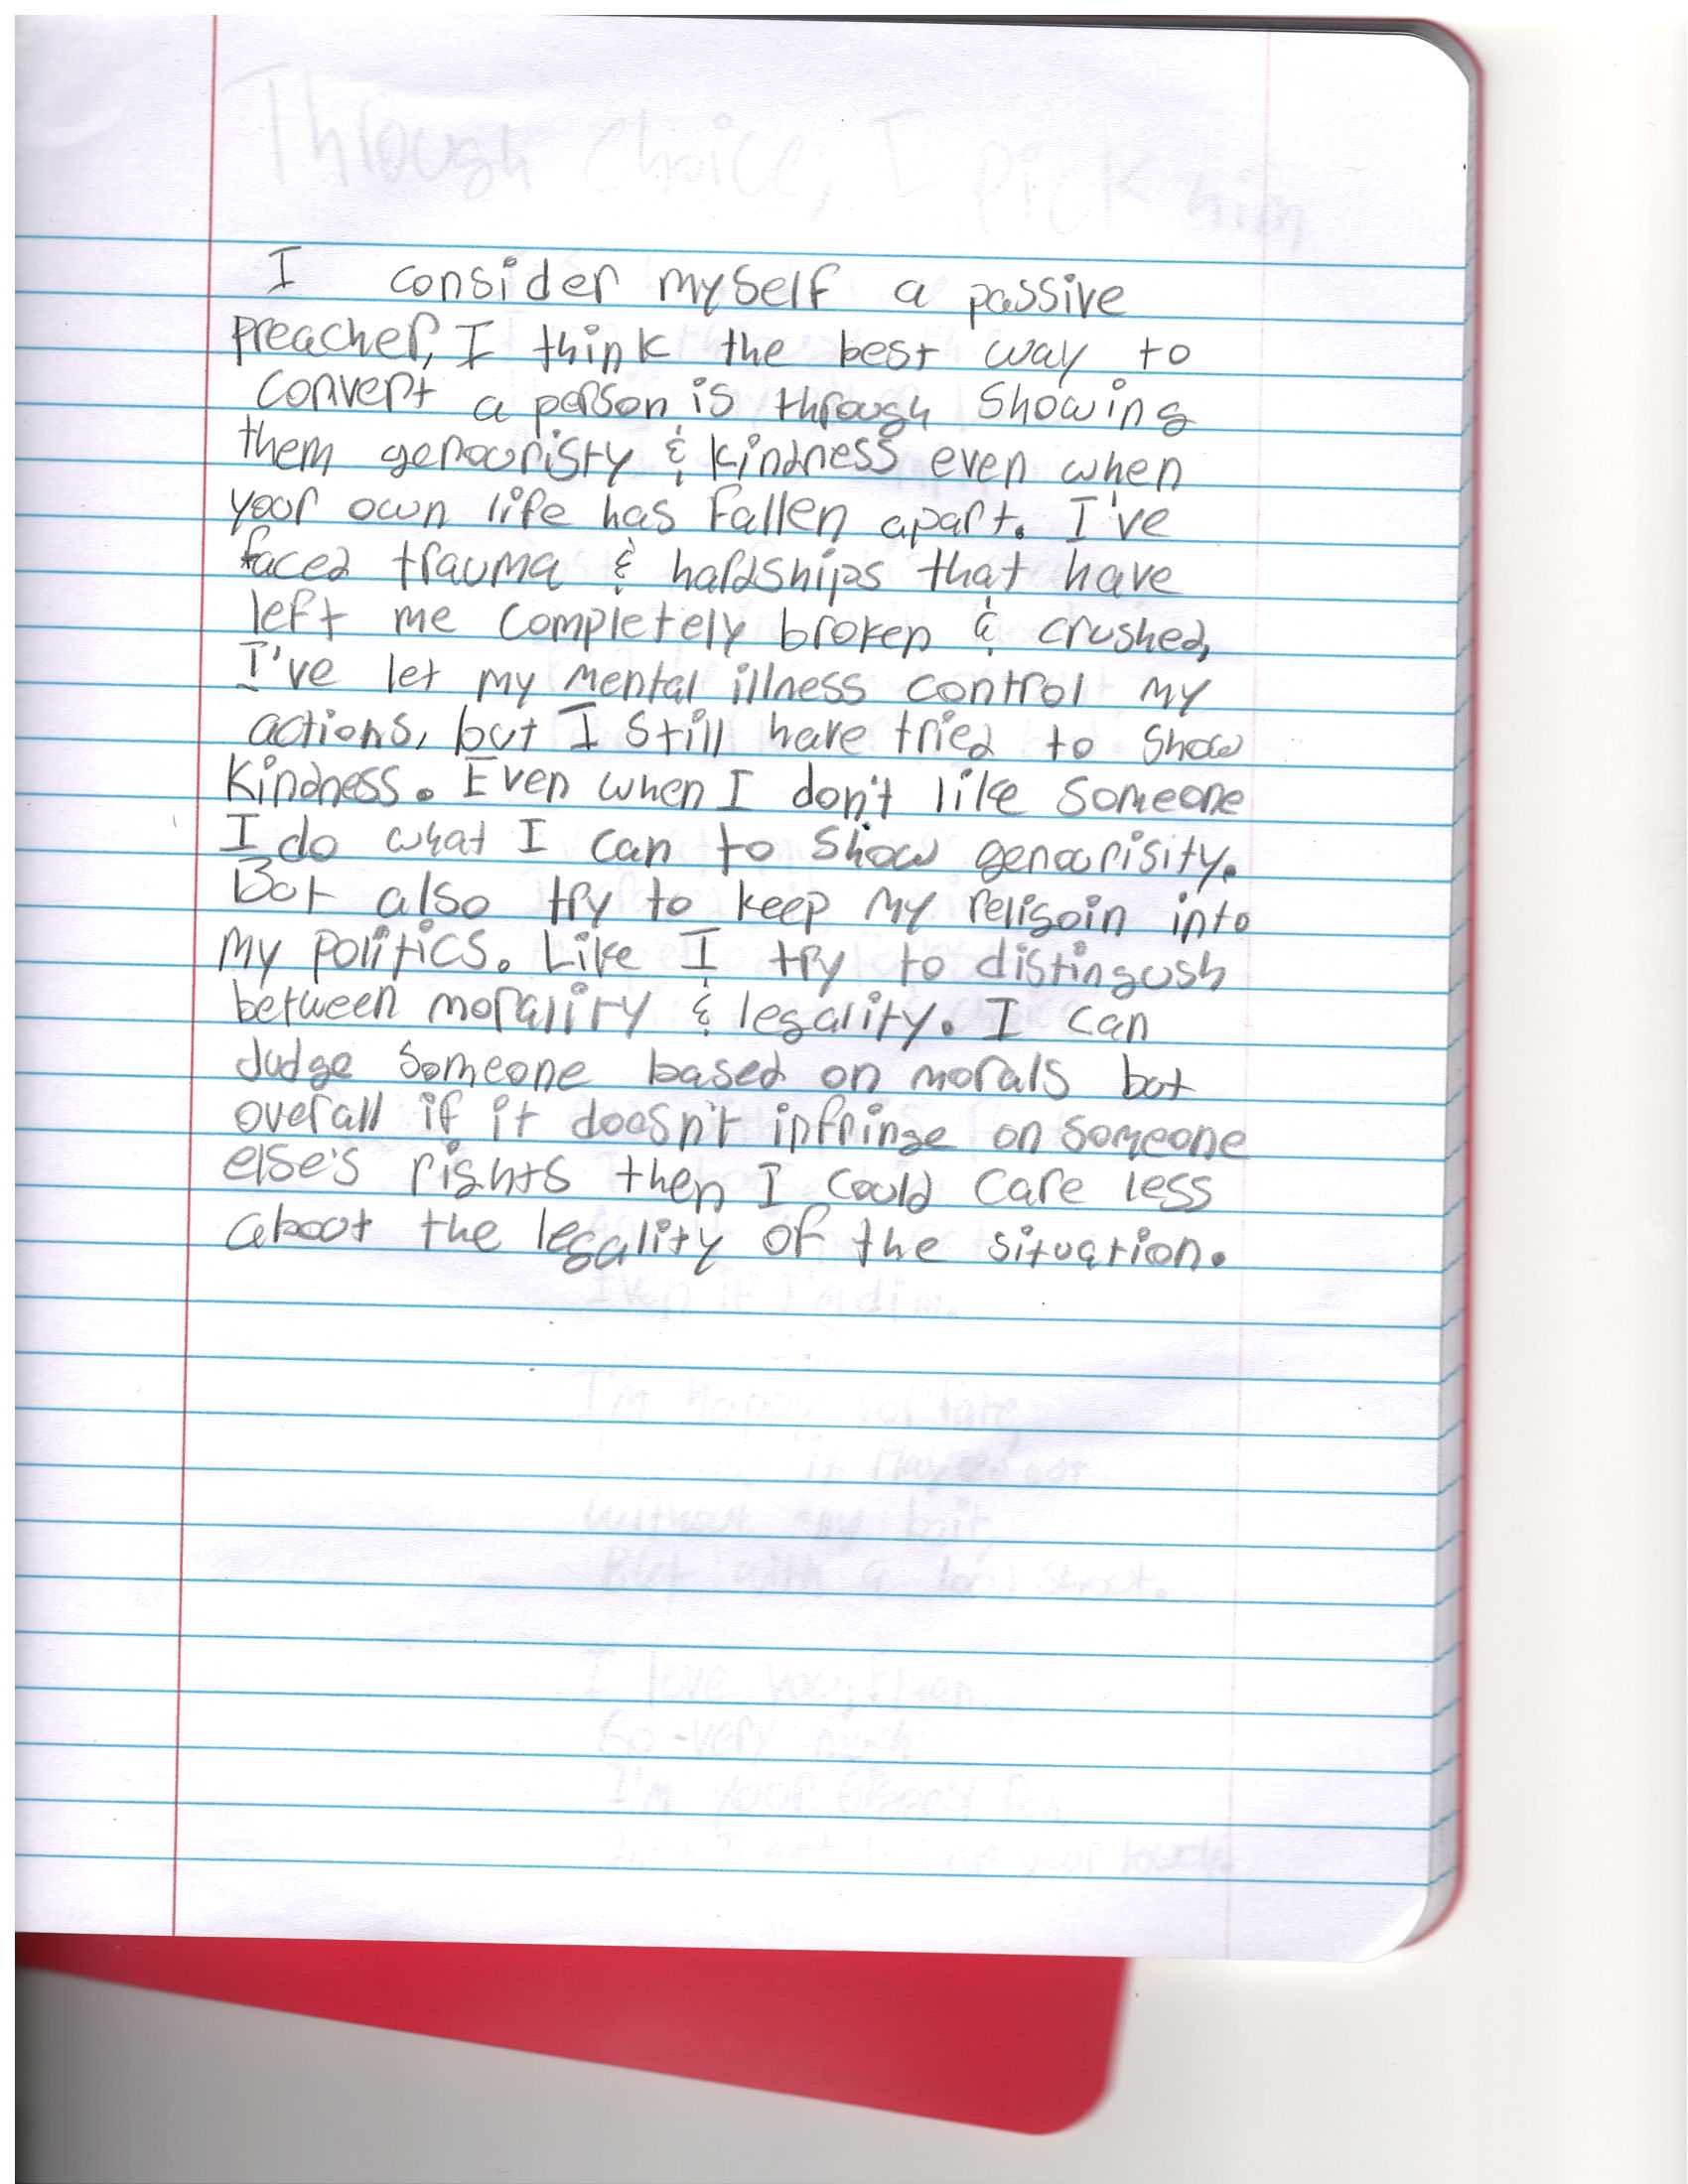 Through Choice, I pick him
I consider myself a passive
preacher, I think the best way to
convert a person is through showing
them generouristy & kindness even when
your own life has fallen apart. I've
faced trauma & hardships that have
left me completely broken & crushed,
I've let my mental illness control my
actions, but I still have tried to show
kindness. Even when I don't like someone
I do what I can to show genourisity.
But also try to keep my religoin into
my politics. Like I try to distingush
between morality & legality. I can
Judge someone based on morals but
overall if it doesn't infringe on someone
else's rights then I could care less
about the legality of the situation.